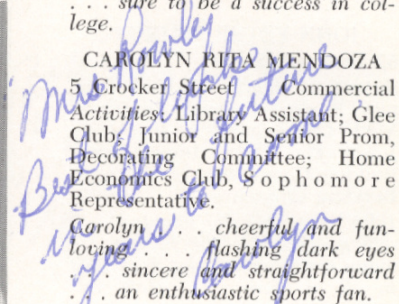 . . . sure to be a success in col-
lege.
CAROLYN RITA MENDOZA
5 Crocker Street Commercial
Activities: Library Assistant; Glee
Club; Junior and Senior Prom,
Decorating Committee; Home
Economics Club, Sophomore
Representative.
Carolyn . . . cheerful and fun-
loving . . . flashing dark eyes
. . . sincere and straightforward
. . . an enthusiastic sports fan.
Miss Rowley
Best of luck
in the future
years to come
Carolyn